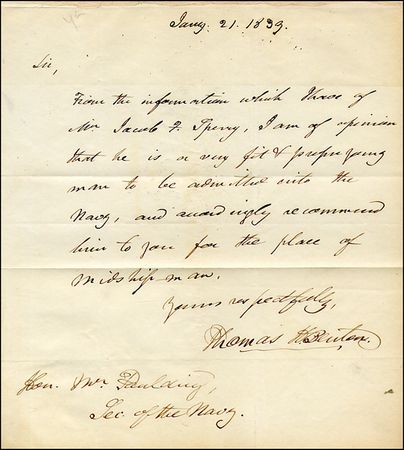 Jany. 21. 1839.
Sir,
From the information which I have of
Mr Jacob F. Sperry, I am of opinion
that he is a very fit & proper young
man to be admitted into the
Navy, and accordingly recommend
him to you for the place of
Midship-man.
Yours respectfully,
Thomas H. Benton.
Hon. Mr. Paulding,
Sec. of the Navy.